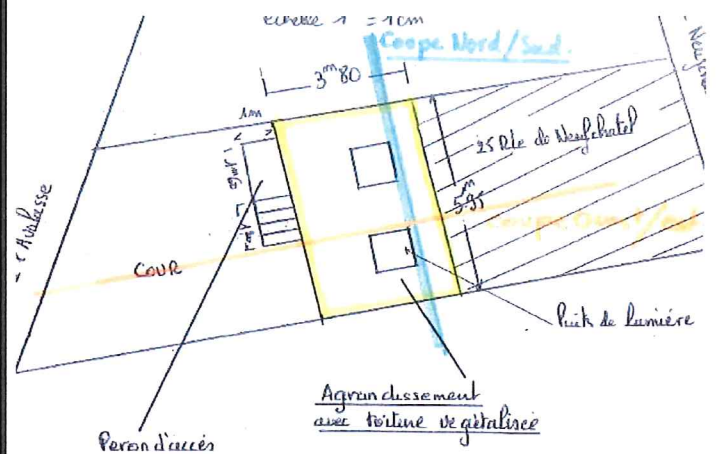 echelle 1 = 1cm
Coupe Nord/Sud.
3m80
1m
25 Rte de Neufchatel
5m95
coupe Ouest/est
COUR
Puits de lumière
Agrandissement
avec toiture végétalisée
Peron d'accés